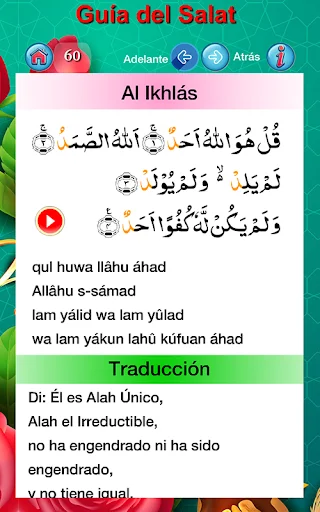 Guía del Salat
60 Adelante Atrás i
Al Ikhlás
قُلْ هُوَ اللّٰهُ اَحَدٌۚ ﴿١﴾ اَللّٰهُ الصَّمَدُۚ ﴿٢﴾
لَمْ يَلِدْ ۙ وَلَمْ يُوْلَدْ ﴿٣﴾
وَلَمْ يَكُنْ لَّهٗ كُفُوًا اَحَدٌ ﴿٤﴾
qul huwa llâhu áhad
Allâhu s-sámad
lam yálid wa lam yûlad
wa lam yákun lahû kúfuan áhad
Traducción
Di: Él es Alah Único,
Alah el Irreductible,
no ha engendrado ni ha sido
engendrado,
y no tiene igual.